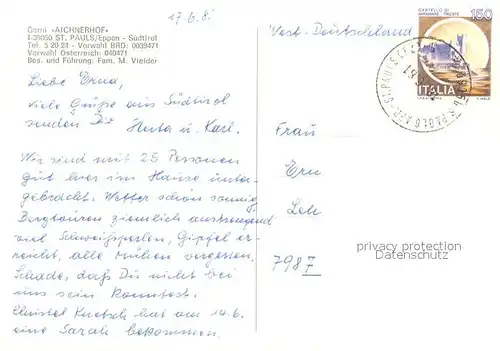 Garni «AICHNERHOF»
I-39050 ST. PAULS/Eppan - Südtirol
Tel. 5 20 24 - Vorwahl BRD: 0039471
Vorwahl Österreich: 040471
Bes. und Führung: Fam. M. Vieider
17.6.8.
West-Deutschland
CASTELLO DI
MIRAMARE - TRIESTE
150
ITALIA
Liebe Erna,
viele Grüße aus Südtirol
senden Dir Huta u. Karl.
Wir sind mit 25 Personen
gut hier im Hause unter-
gebracht. Wetter schön sonnig,
Bergtouren ziemlich anstrengend
viel Schweißperlen. Gipfel er-
reicht, alle Mühen vergessen.
Schade, daß Du nicht bei
uns sein konntest.
Christel hat am 14.6.
eine Sarah bekommen.
Frau
Ern
Leh
7987
privacy protection
Datenschutz